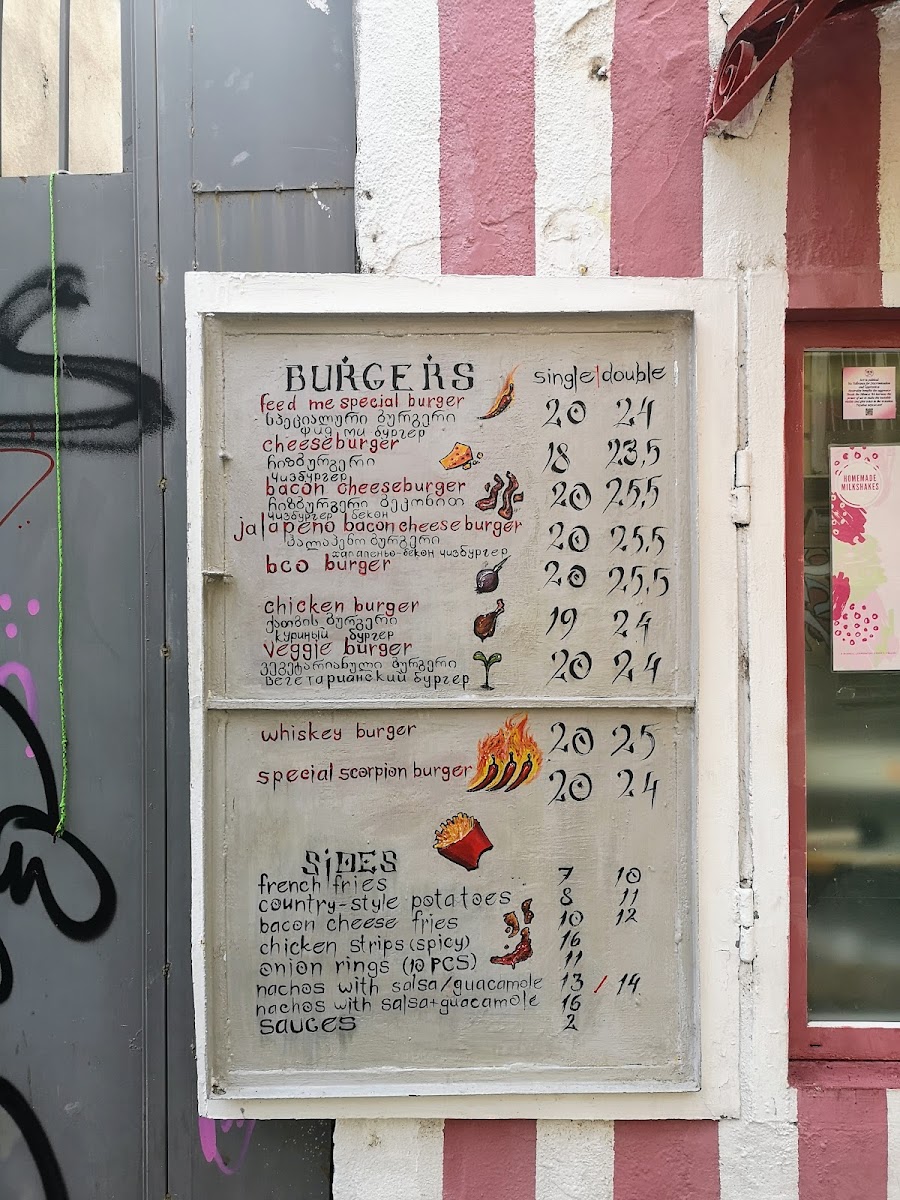 BURGERS single|double
feed me special burger 20 24
სპეციალური ბურგერი
Фид ми бургер
cheeseburger 18 23,5
ჩიზბურგერი
чизбургер
bacon cheeseburger 20 25,5
ჩიზბურგერი ბეკონით
чизбургер бекон
jalapeno bacon cheese burger 20 25,5
ჰალაპენო ბურგერი
халапеньо-бекон чизбургер
bco burger 20 25,5
chicken burger 19 24
ქათმის ბურგერი
куриный бургер
veggie burger 20 24
ვეგეტარიანული ბურგერი
вегетарианский бургер
whiskey burger 20 25
special scorpion burger 20 24
SIDES
french fries 7 10
country-style potatoes 8 11
bacon cheese fries 10 12
chicken strips (spicy) 16
onion rings (10 PCS) 11
nachos with salsa/guacamole 13 / 14
nachos with salsa+guacamole 16
sauces 2
HOMEMADE
MILKSHAKES